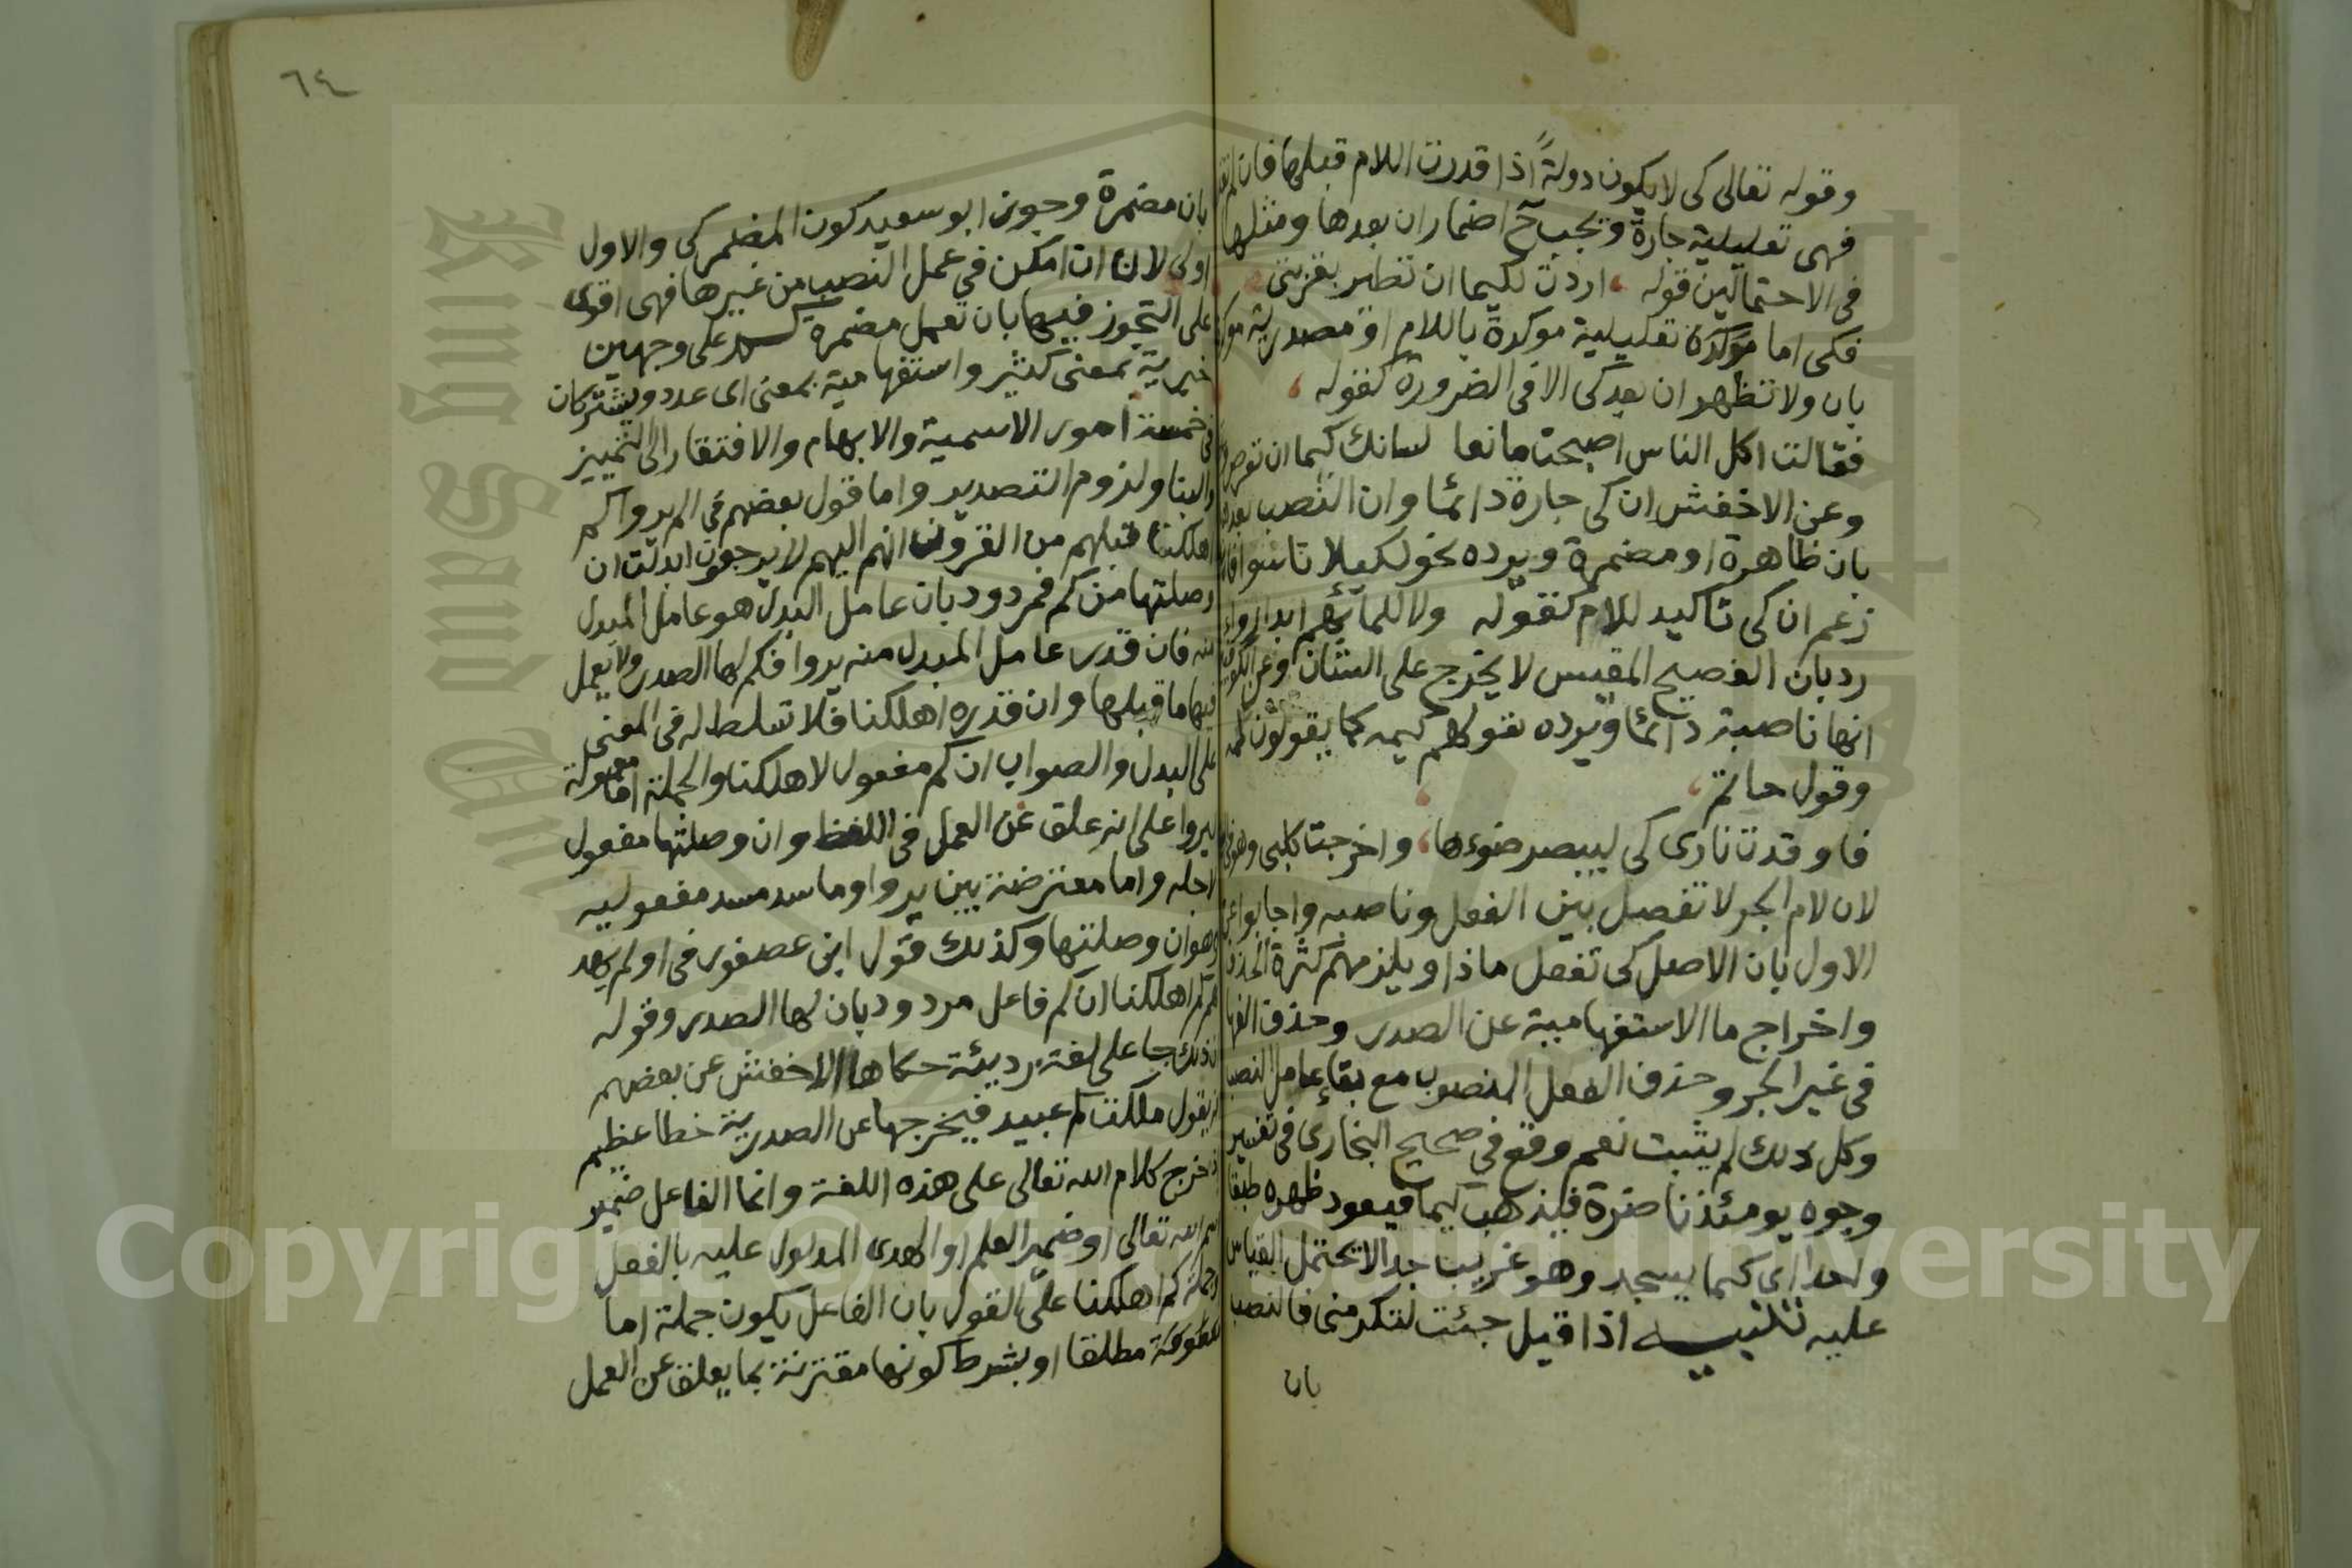 وقوله تعالى كى لا يكون دولةً اذا قدرت اللام قبلها فان لم تقدر
فهى تعليلية جارة وتجب ح اضمار ان بعدها ومثلها
فى الاحتمالين قوله اردت لكيما ان تطير بقربتى
فكى اما موكدة تعليلية موكدة باللام او مصدرية موكدة
بان ولا تظهر ان بعد كى الا فى الضرورة كقوله
فقالت اكل الناس اصبحت مانعا لسانك كيما ان تغر
وعن الاخفش ان كى جارة دائما وان النصب بعدها
بان ظاهرة او مضمرة ويرده نحو لكيلا تاسوا فان
زعم ان كى تاكيد للام كقوله ولا للما بهم ابدا دواء
رد بان الفصيح المقيس لا يخرج على الشاذ وعن الكوفيين
انها ناصبة دائما ويرده قولهم كيمه كما يقولون لمه
وقول حاتم
فاوقدت نارى كى ليبصر ضوءها واخرجت كلبى وهو فى
لان لام الجر لا تفصل بين الفعل وناصبه واجابوا عن
الاول بان الاصل كى تفعل ماذا ويلزمهم كثرة الحذف
واخراج ما الاستفهامية عن الصدر وحذف الفها
فى غير الجر وحذف الفعل المنصوب مع بقاء عامل النصب
وكل ذلك لم يثبت نعم وقع في صحيح البخارى فى تفسير
وجوه يومئذ ناضرة فيذهب كيما فيعود ظهره طبقا
واحدا اى كيما يسجد وهو غريب جدا لا يحتمل القياس
عليه تنبيه اذا قيل جئت لتكرمنى فالنصب
بان
٦٤
بان مضمرة وجوز ابو سعيد كون المضمر كى والاول
اولى لان ان امكن فى عمل النصب من غيرها فهى اقوى
على التجوز فيها بان تعمل مضمرة كم على وجهين
خبرية بمعنى كثير واستفهامية بمعنى اى عدد ويشتركان
فى خمسة امور الاسمية والابهام والافتقار الى التمييز
والبنا ولزوم التصدير واما قول بعضهم في الم يروا كم
اهلكنا قبلهم من القرون انهم اليهم لا يرجعون ابدلت ان
وصلتها من كم فمردود بان عامل البدل هو عامل المبدل
منه فان قدر عامل المبدل منه يروا فكم لها الصدر ولا يعمل
فيها ما قبلها وان قدره اهلكنا فلا تسلط له فى المعنى
على البدل والصواب ان كم مفعول لاهلكنا والجملة اما معمولة
ليروا على انه علق عن العمل فى اللفظ وان وصلتها مفعول
لاجله واما معترضة بين يروا وما سد مسد مفعوليه
وهو ان وصلتها وكذلك قول ابن عصفور فى او لم يهد
لهم كم اهلكنا ان كم فاعل مردود بان لها الصدر وقوله
ان ذلك جا على لغة رديئة حكاها الاخفش عن بعضهم
انه يقول ملكت كم عبيد فيخرجها عن الصدرية خطا عظيم
اذ خرج كلام الله تعالى على هذه اللغة وانما الفاعل ضمير
اسم الله تعالى او ضمير العلم او الهدى المدلول عليه بالفعل
او جملة كم اهلكنا على القول بان الفاعل يكون جملة اما
مطلقا او بشرط كونها مقترنة بما يعلق عن العمل
Copyright © King Saud University
King Saud University